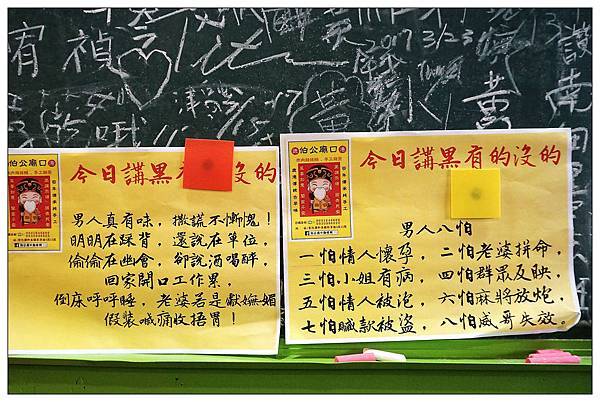 宥禎
2017 3/23
黃
黃
伯公廟口
今日講黑有的沒的
男人真有味，撒謊不慚愧！
明明在踩背，還說在單位，
偷偷在幽會，卻說酒喝醉，
回家開口工作累，
倒床呼呼睡，老婆若是獻嫵媚
假裝喊痛收捂胃！
伯公廟口
今日講黑有的沒的
男人八怕
一怕情人懷孕，二怕老婆拼命，
三怕小姐有病，四怕群眾反映，
五怕情人被泡，六怕麻將放炮，
七怕贓款被盜，八怕威哥失效。